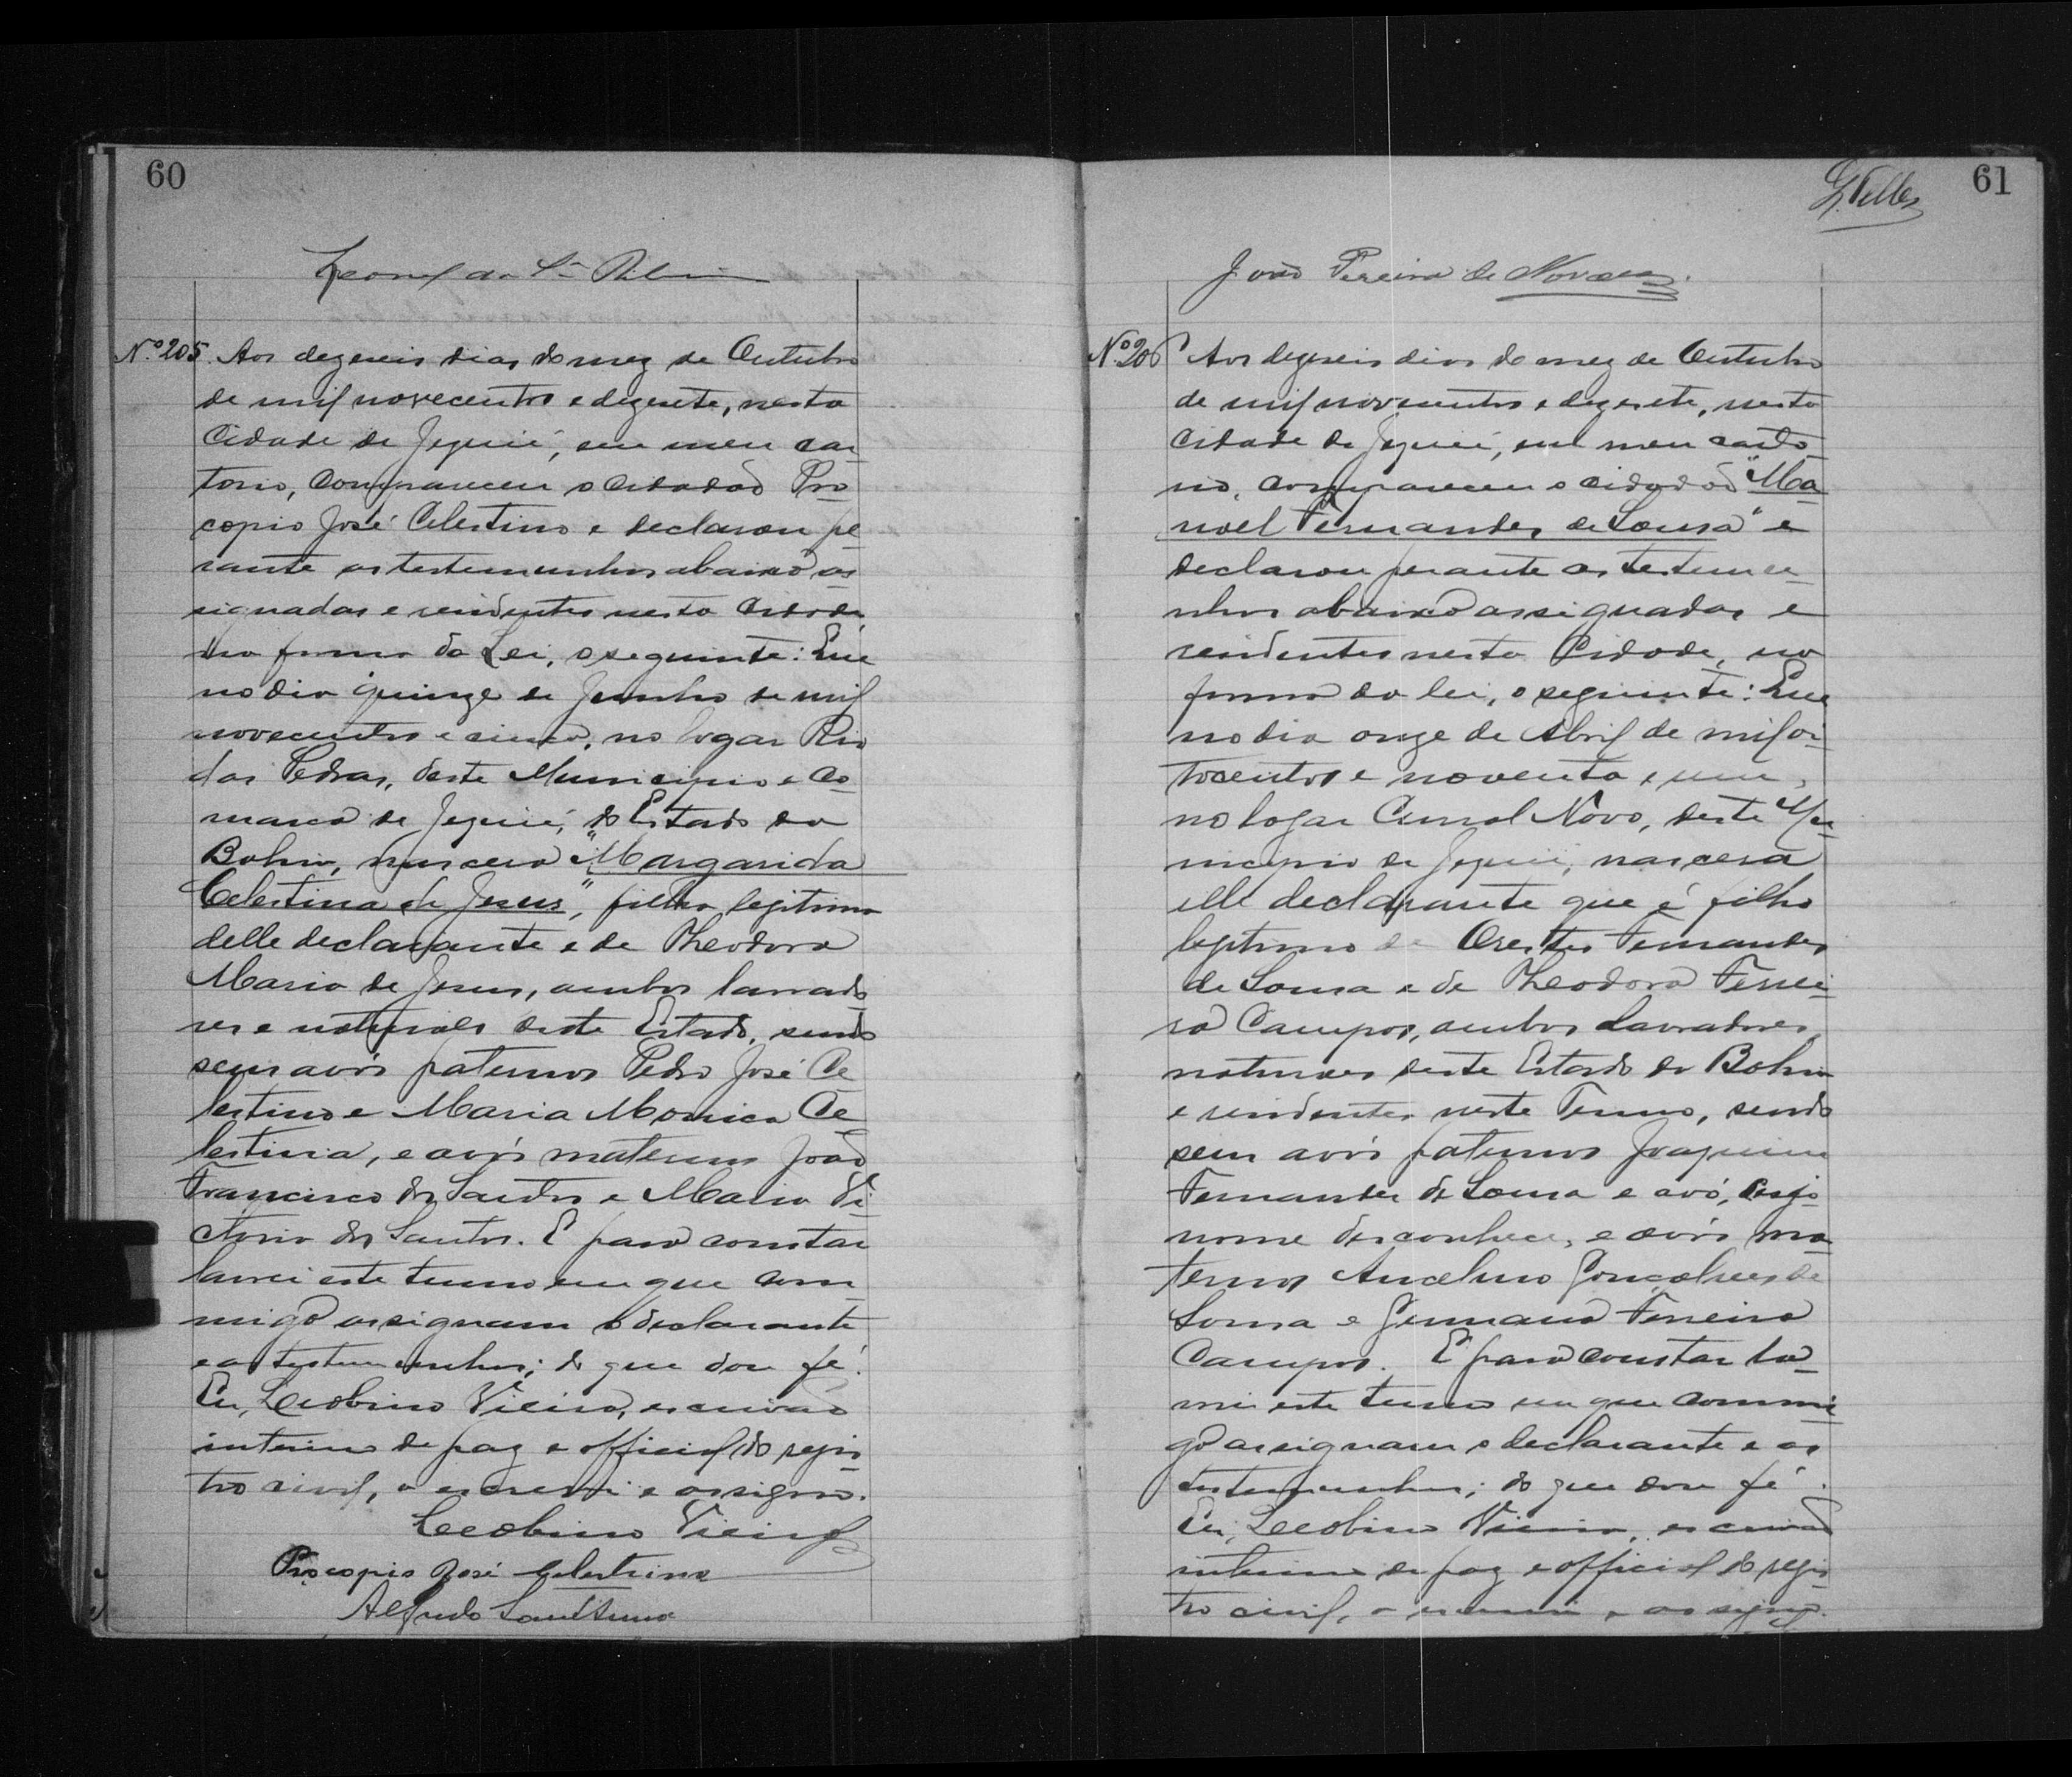 60
Leonel da S.ª Ribeiro
Nº 205. Aos dezeseis dias do mez de Outubro
de mil novecentos e dezesete, nesta
Cidade de Jequié, em meu car-
torio, compareceu o cidadão Pro-
copio José Celestino e declarou pe-
rante as testemunhas abaixo as-
signadas e residentes nesta Cidade,
na forma da Lei, o seguinte: Que
no dia quinze de Junho de mil
novecentos e cinco, no logar Rio
das Pedras, deste Municipio e Co-
marca de Jequié, do Estado da
Bahia, nascera "Margarida
Celestina de Jesus", filha legitima
delle declarante e de Theodora
Maria de Jesus, ambos lavrado-
res e naturaes deste Estado, sendo
seus avós paternos Pedro José Ce-
lestino e Maria Monica Ce-
lestina, e avós maternos João
Francisco dos Santos e Maria Vi-
ctoria dos Santos. E para constar
lavrei este termo em que com-
migo assignam o declarante
e as testemunhas; do que dou fé.
Eu, Leobino Vieira, escrivão
interino de paz e official do regis-
tro civil, o escrevi e assigno.
Leobino Vieira
Procopio José Celestrino
Alfredo Sant'Anna
61
L. Telles
João Pereira de Novaes.
Nº 206 Aos dezeseis dias do mez de Outubro
de mil novecentos e dezesete, nesta
cidade de Jequié, em meu carto-
rio, compareceu o cidadão "Ma-
noel Fernandes de Sousa" e
declarou perante as testemu-
nhas abaixo assignadas e
residentes nesta Cidade, na
forma da lei, o seguinte: Que
no dia onze de Abril de mil oi-
tocentos e noventa e um,
no logar Curral Novo, deste Mu-
nicipio de Jequié, nascera
elle declarante que é filho
legitimo de Orestes Fernandes
de Sousa e de Theodora Ferrei-
ra Campos, ambos lavradores,
naturaes deste Estado da Bahia
e residentes neste Termo, sendo
seus avós paternos Joaquim
Fernandes de Sousa e avó, cujo
nome desconhece, e avós ma-
ternos Ancelmo Gonçalves de
Sousa e Germana Ferreira
Campos. E para constar la-
vrei este termo em que commi-
go assignam o declarante e as
testemunhas; do que dou fé.
Eu, Leobino Vieira, escrivão
interino de paz e official do regis-
tro civil, o escrevi e assigno.